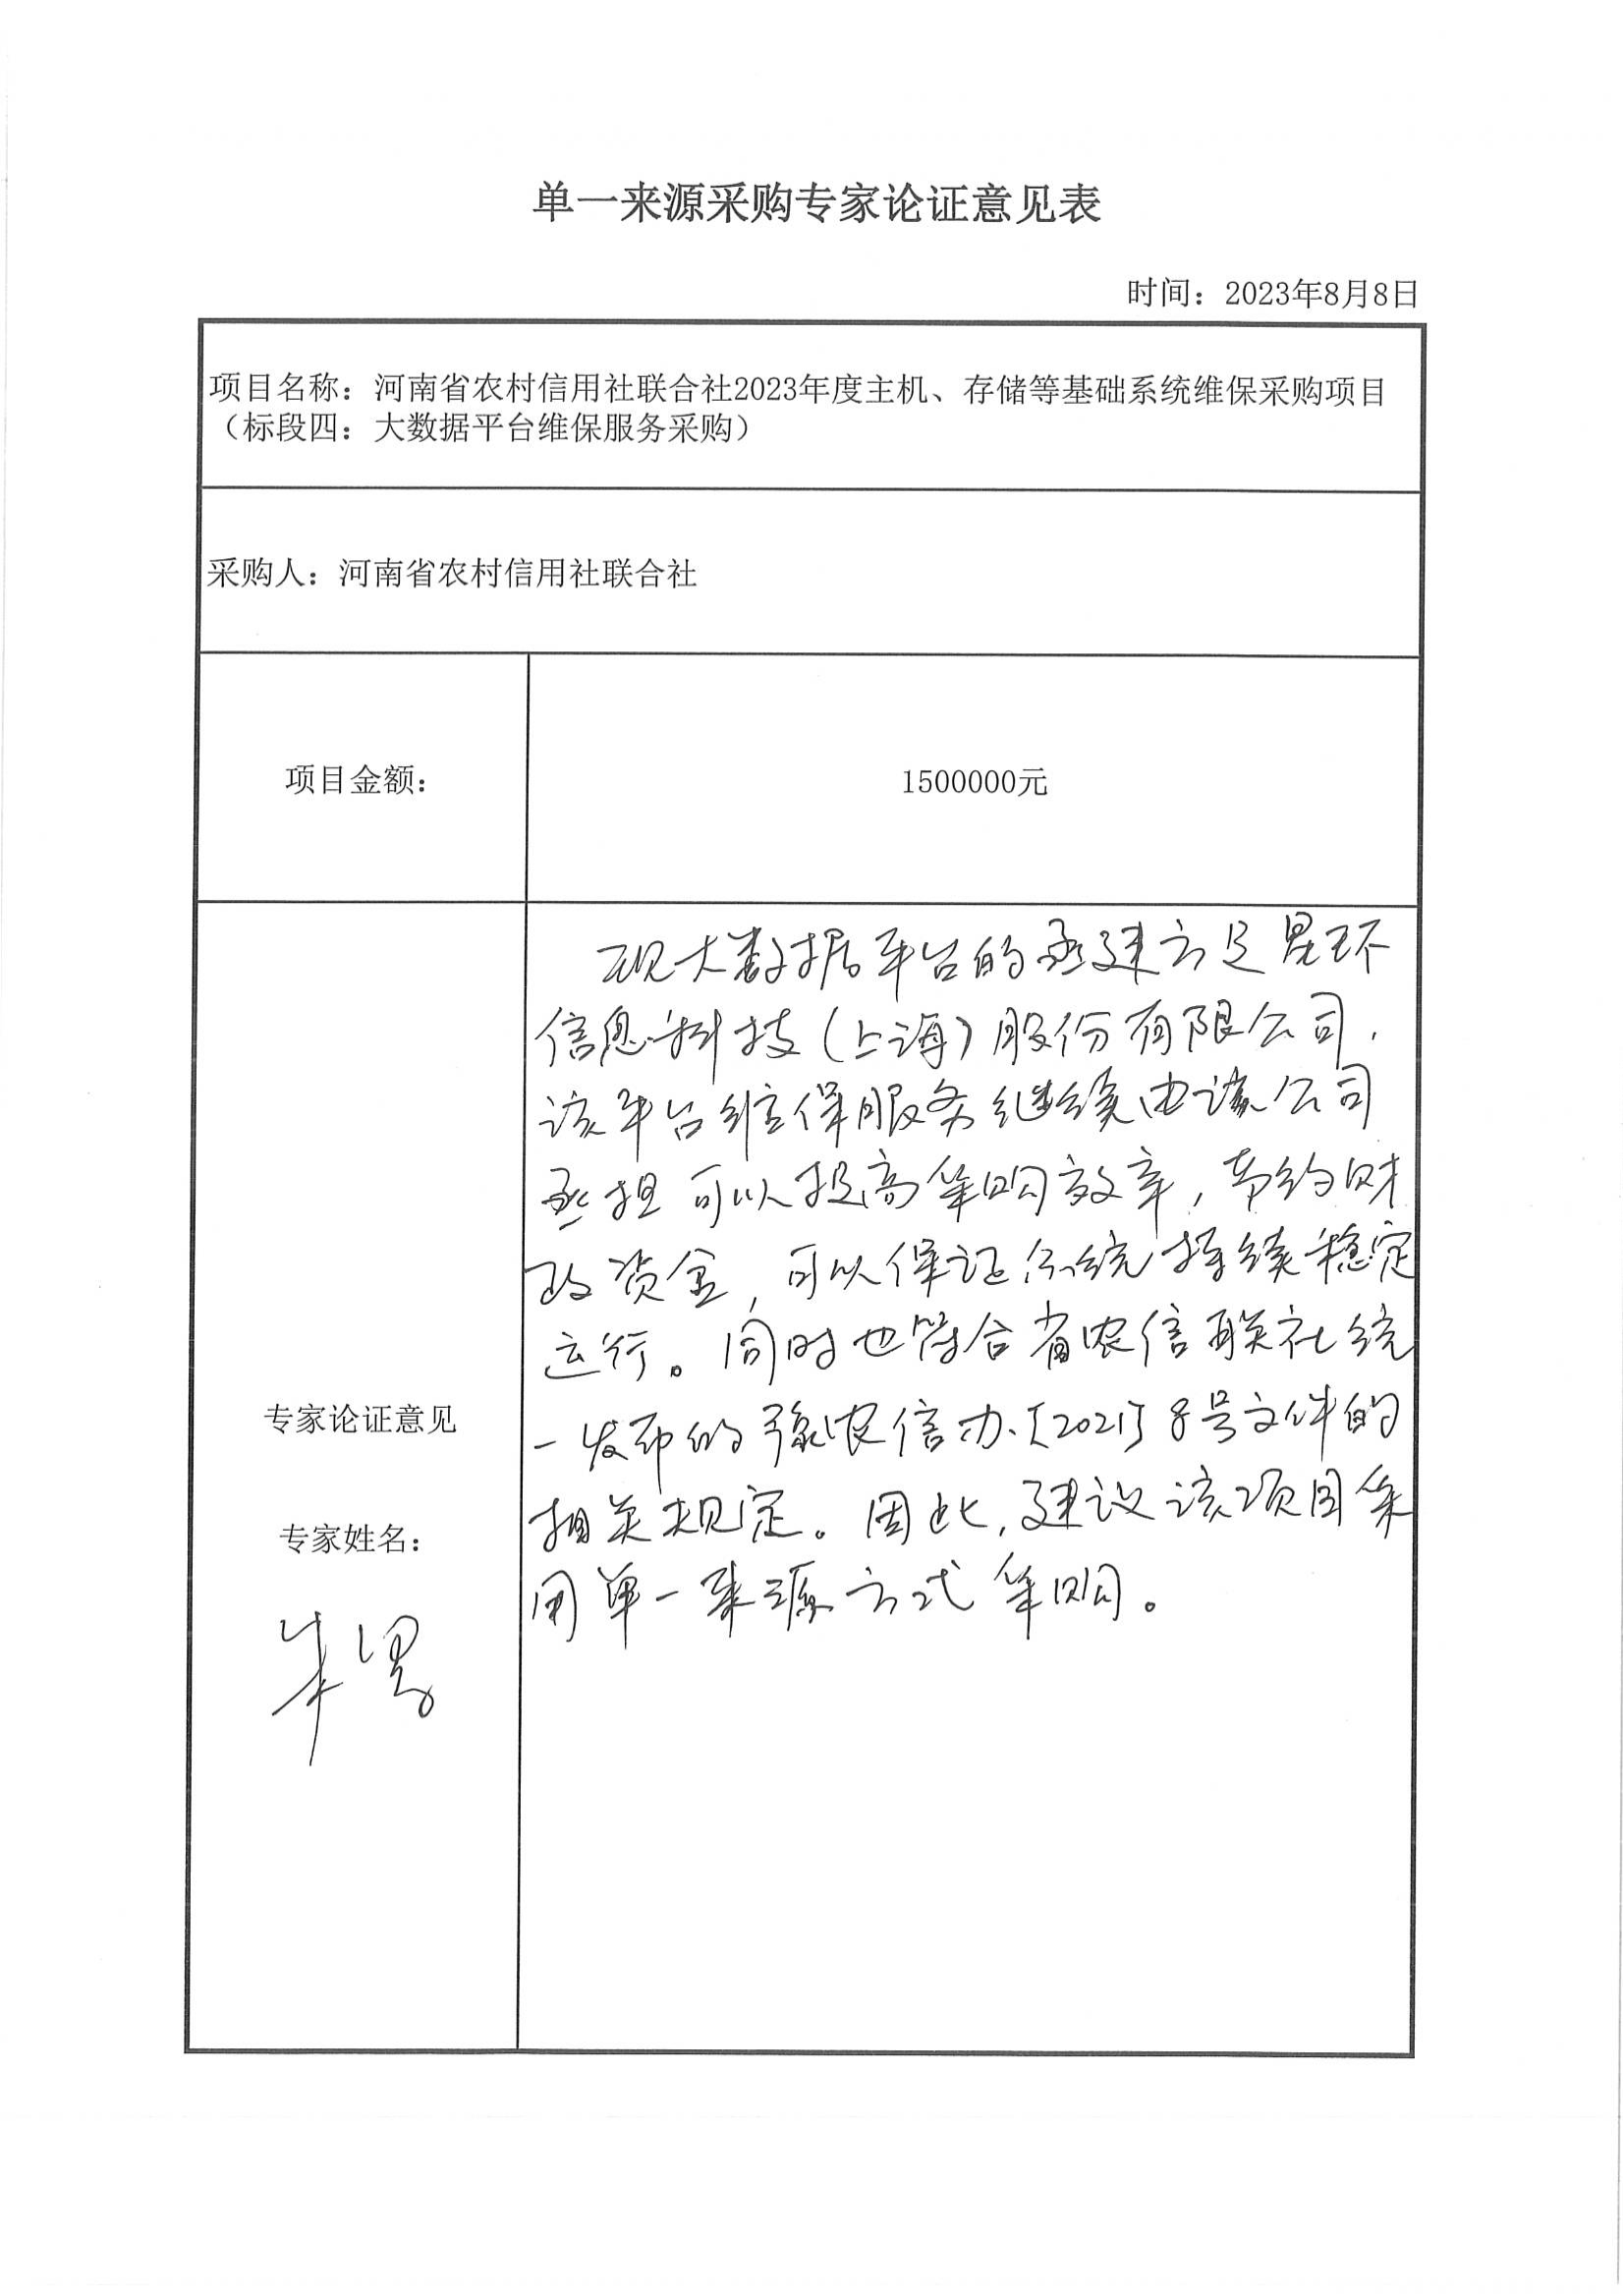 单一来源采购专家论证意见表
时间：2023年8月8日
项目名称：河南省农村信用社联合社2023年度主机、存储等基础系统维保采购项目
（标段四：大数据平台维保服务采购）
采购人：河南省农村信用社联合社
项目金额：
1500000元
专家论证意见
专家姓名：
现大数据平台的承建方是星环
信息科技（上海）股份有限公司，
该平台维保服务继续由该公司
承担可以提高采购效率，节约财
政资金，可以保证系统持续稳定
运行。同时也符合省农信联社统
一发布的豫农信办〔2021〕8号文件的
相关规定。因此，建议该项目采
用单一来源方式采购。